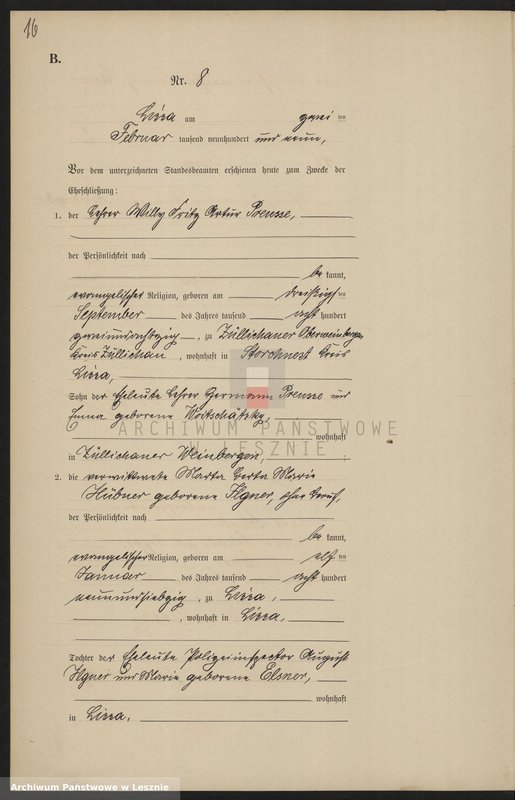 16
B.
Nr. 8
Lissa am zwei ten
Februar tausend neunhundert und neun,
Vor dem unterzeichneten Standesbeamten erschienen heute zum Zwecke der
Eheschließung:
1. der Lehrer Willy Fritz Artur Preusse,
der Persönlichkeit nach
be kannt,
evangelischer Religion, geboren am dreißigs ten
September des Jahres tausend acht hundert
zweiundachtzig, zu Züllichauer Oberweinbergen,
Kreis Züllichau, wohnhaft in Storchnest Kreis
Lissa,
Sohn der Eheleute Lehrer Hermann Preusse und
Emma geborene
wohnhaft
in Züllichauer Weinbergen,
2. die verwittwete Marta Berta Marie
Hübner geborene Ilgner, ohne Beruf,
der Persönlichkeit nach
be kannt,
evangelischer Religion, geboren am elf ten
Januar des Jahres tausend acht hundert
neunundsiebzig, zu Lissa,
, wohnhaft in Lissa,
Tochter der Eheleute Polizeiinspector August
Ilgner und Marie geborene Elsner,
wohnhaft
in Lissa,
ARCHIWUM PAŃSTWOWE
W LESZNIE
Archiwum Państwowe w Lesznie